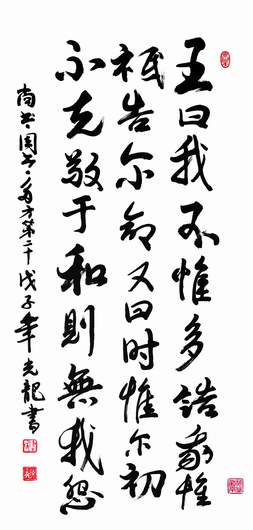 王曰我不惟多誥我惟
祗告尔命又曰时惟尔初
不克敬于和則無我怨
尚书周书·多方第二十戊子年光龍書